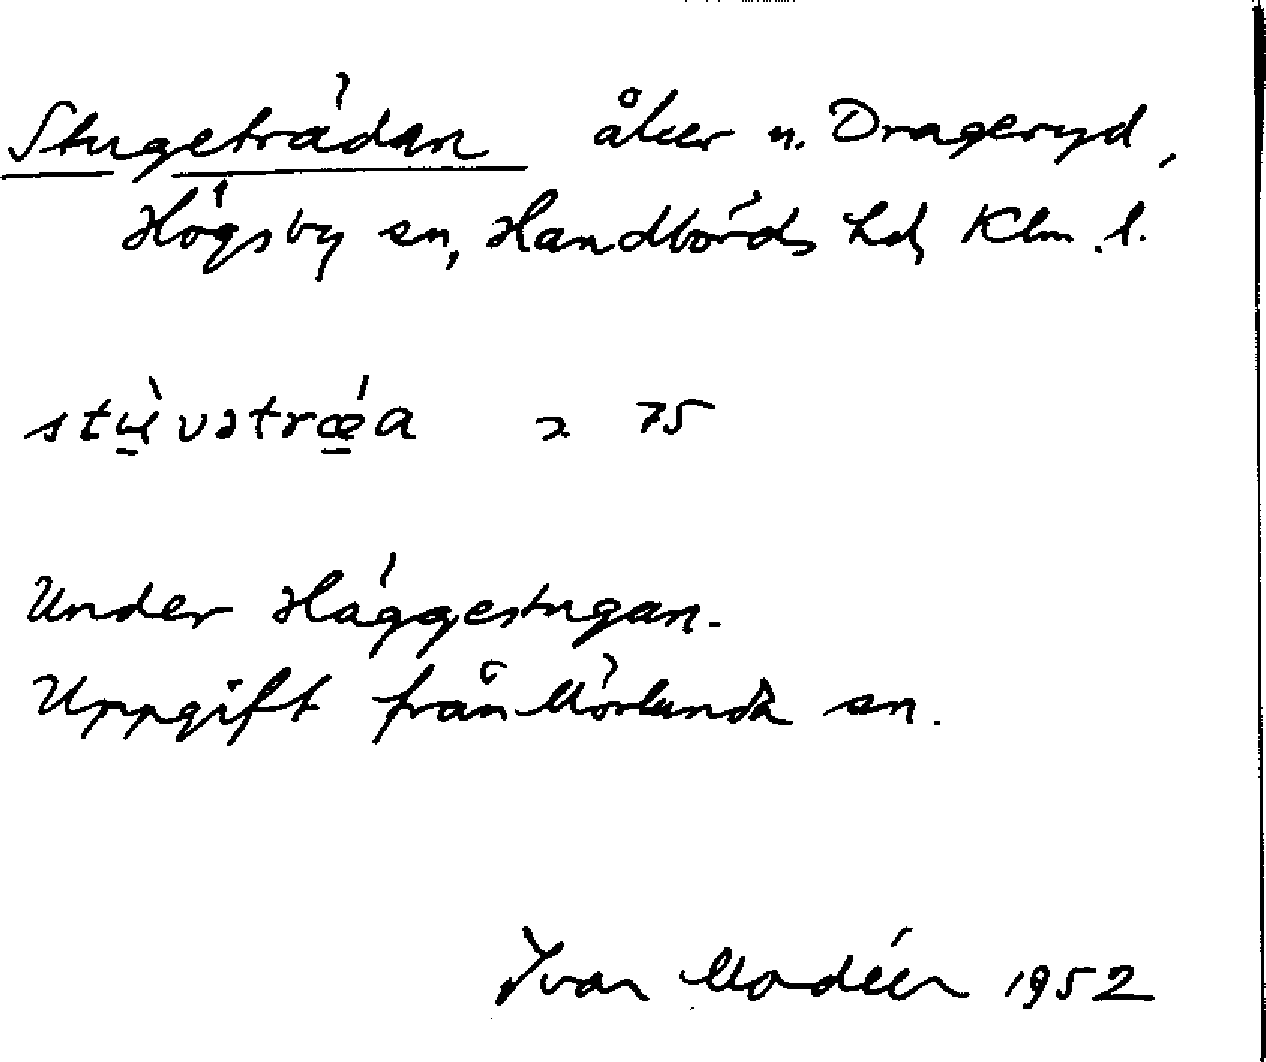 Stugeträdan åker n. Drageryd,
Högsby sn, Handbörds hd, Klm. l.
Under Häggestugan.
Uppgift från Mörlunda sn.
Ivar Modéer 1952